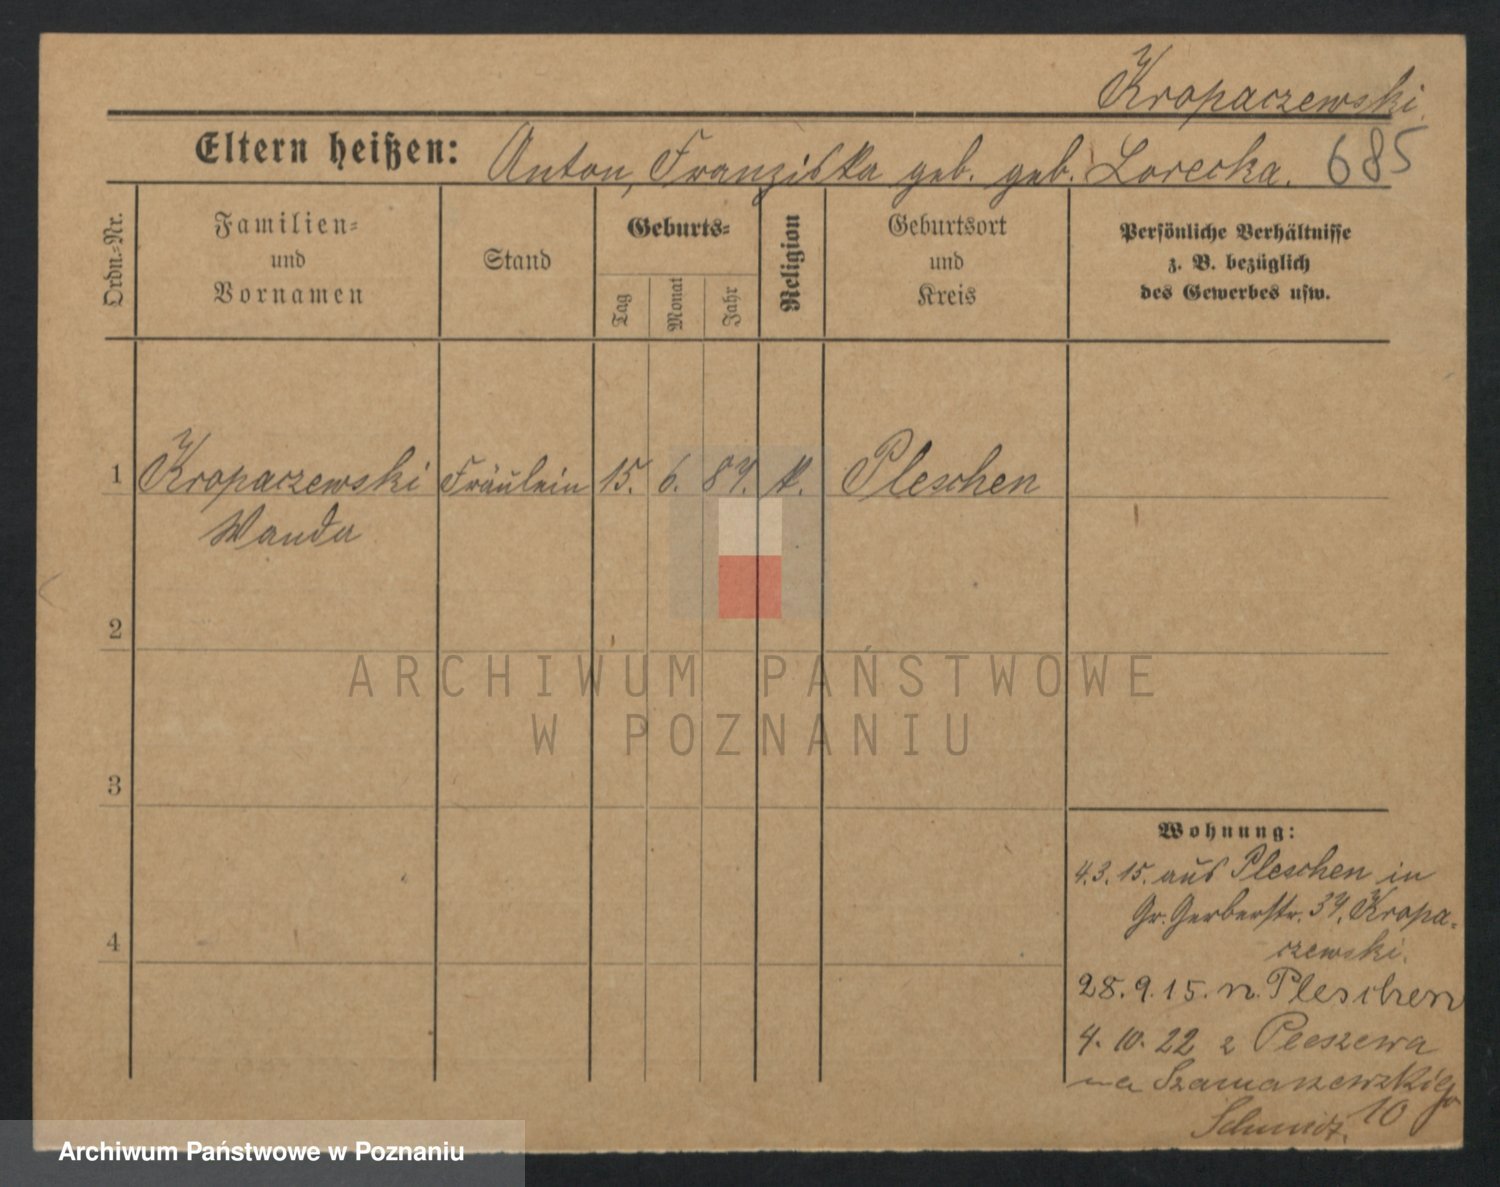 Kropaczewski.
Eltern heißen: Anton, Franziska geb. geb. Lorecka. 685
Ordn.-Nr.
Familien- und Vornamen
Stand
Geburts-
Tag
Monat
Jahr
Religion
Geburtsort und Kreis
Persönliche Verhältnisse
z. B. bezüglich
des Gewerbes usw.
1 Kropaczewski Fräulein 15. 6. 84. k. Pleschen
Wanda
2
3
4
Wohnung:
4.3.15. aus Pleschen in
Gr. Gerberstr. 34, Kropa-
czewski.
28.9.15. n. Pleschen
4.10.22 z Pleszewa
na Szamarzewskiego
10
Schmidt.
ARCHIWUM PAŃSTWOWE
W POZNANIU
Archiwum Państwowe w Poznaniu